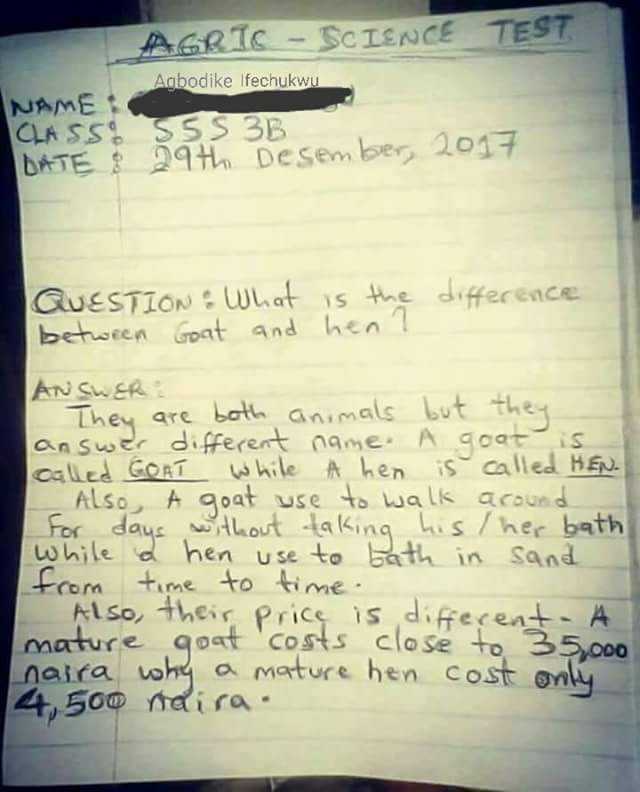 AGRIC - SCIENCE TEST
Agbodike Ifechukwu
NAME :
CLASS: SSS 3B
DATE : 29th Desember, 2017
QUESTION : What is the difference
between Goat and hen?
ANSWER :
They are both animals but they
answer different name. A goat is
called GOAT while A hen is called HEN.
Also, A goat use to walk around
For days without taking his / her bath
while a hen use to bath in sand
from time to time.
Also, their price is different. A
mature goat costs close to 35,000
naira why a mature hen cost only
4,500 naira.